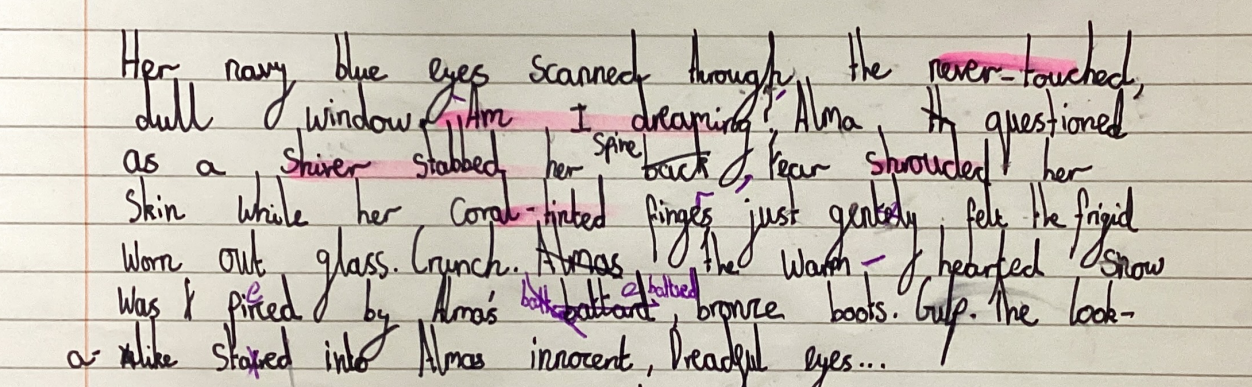 Her navy blue eyes scanned through, the never-touched,
dull window. "Am I dreaming?" Alma, th questioned
as a shiver stabbed her spine back, fear shrouded her
Skin while her coral-tinted fingers just gently felt the frigid
Worn out glass. Crunch. Almas the warm-hearted Snow
was pireed by Alma's batterd, bronze boots. Gulp. The look-
a-like stared into Almas innocent, Dreadful eyes...